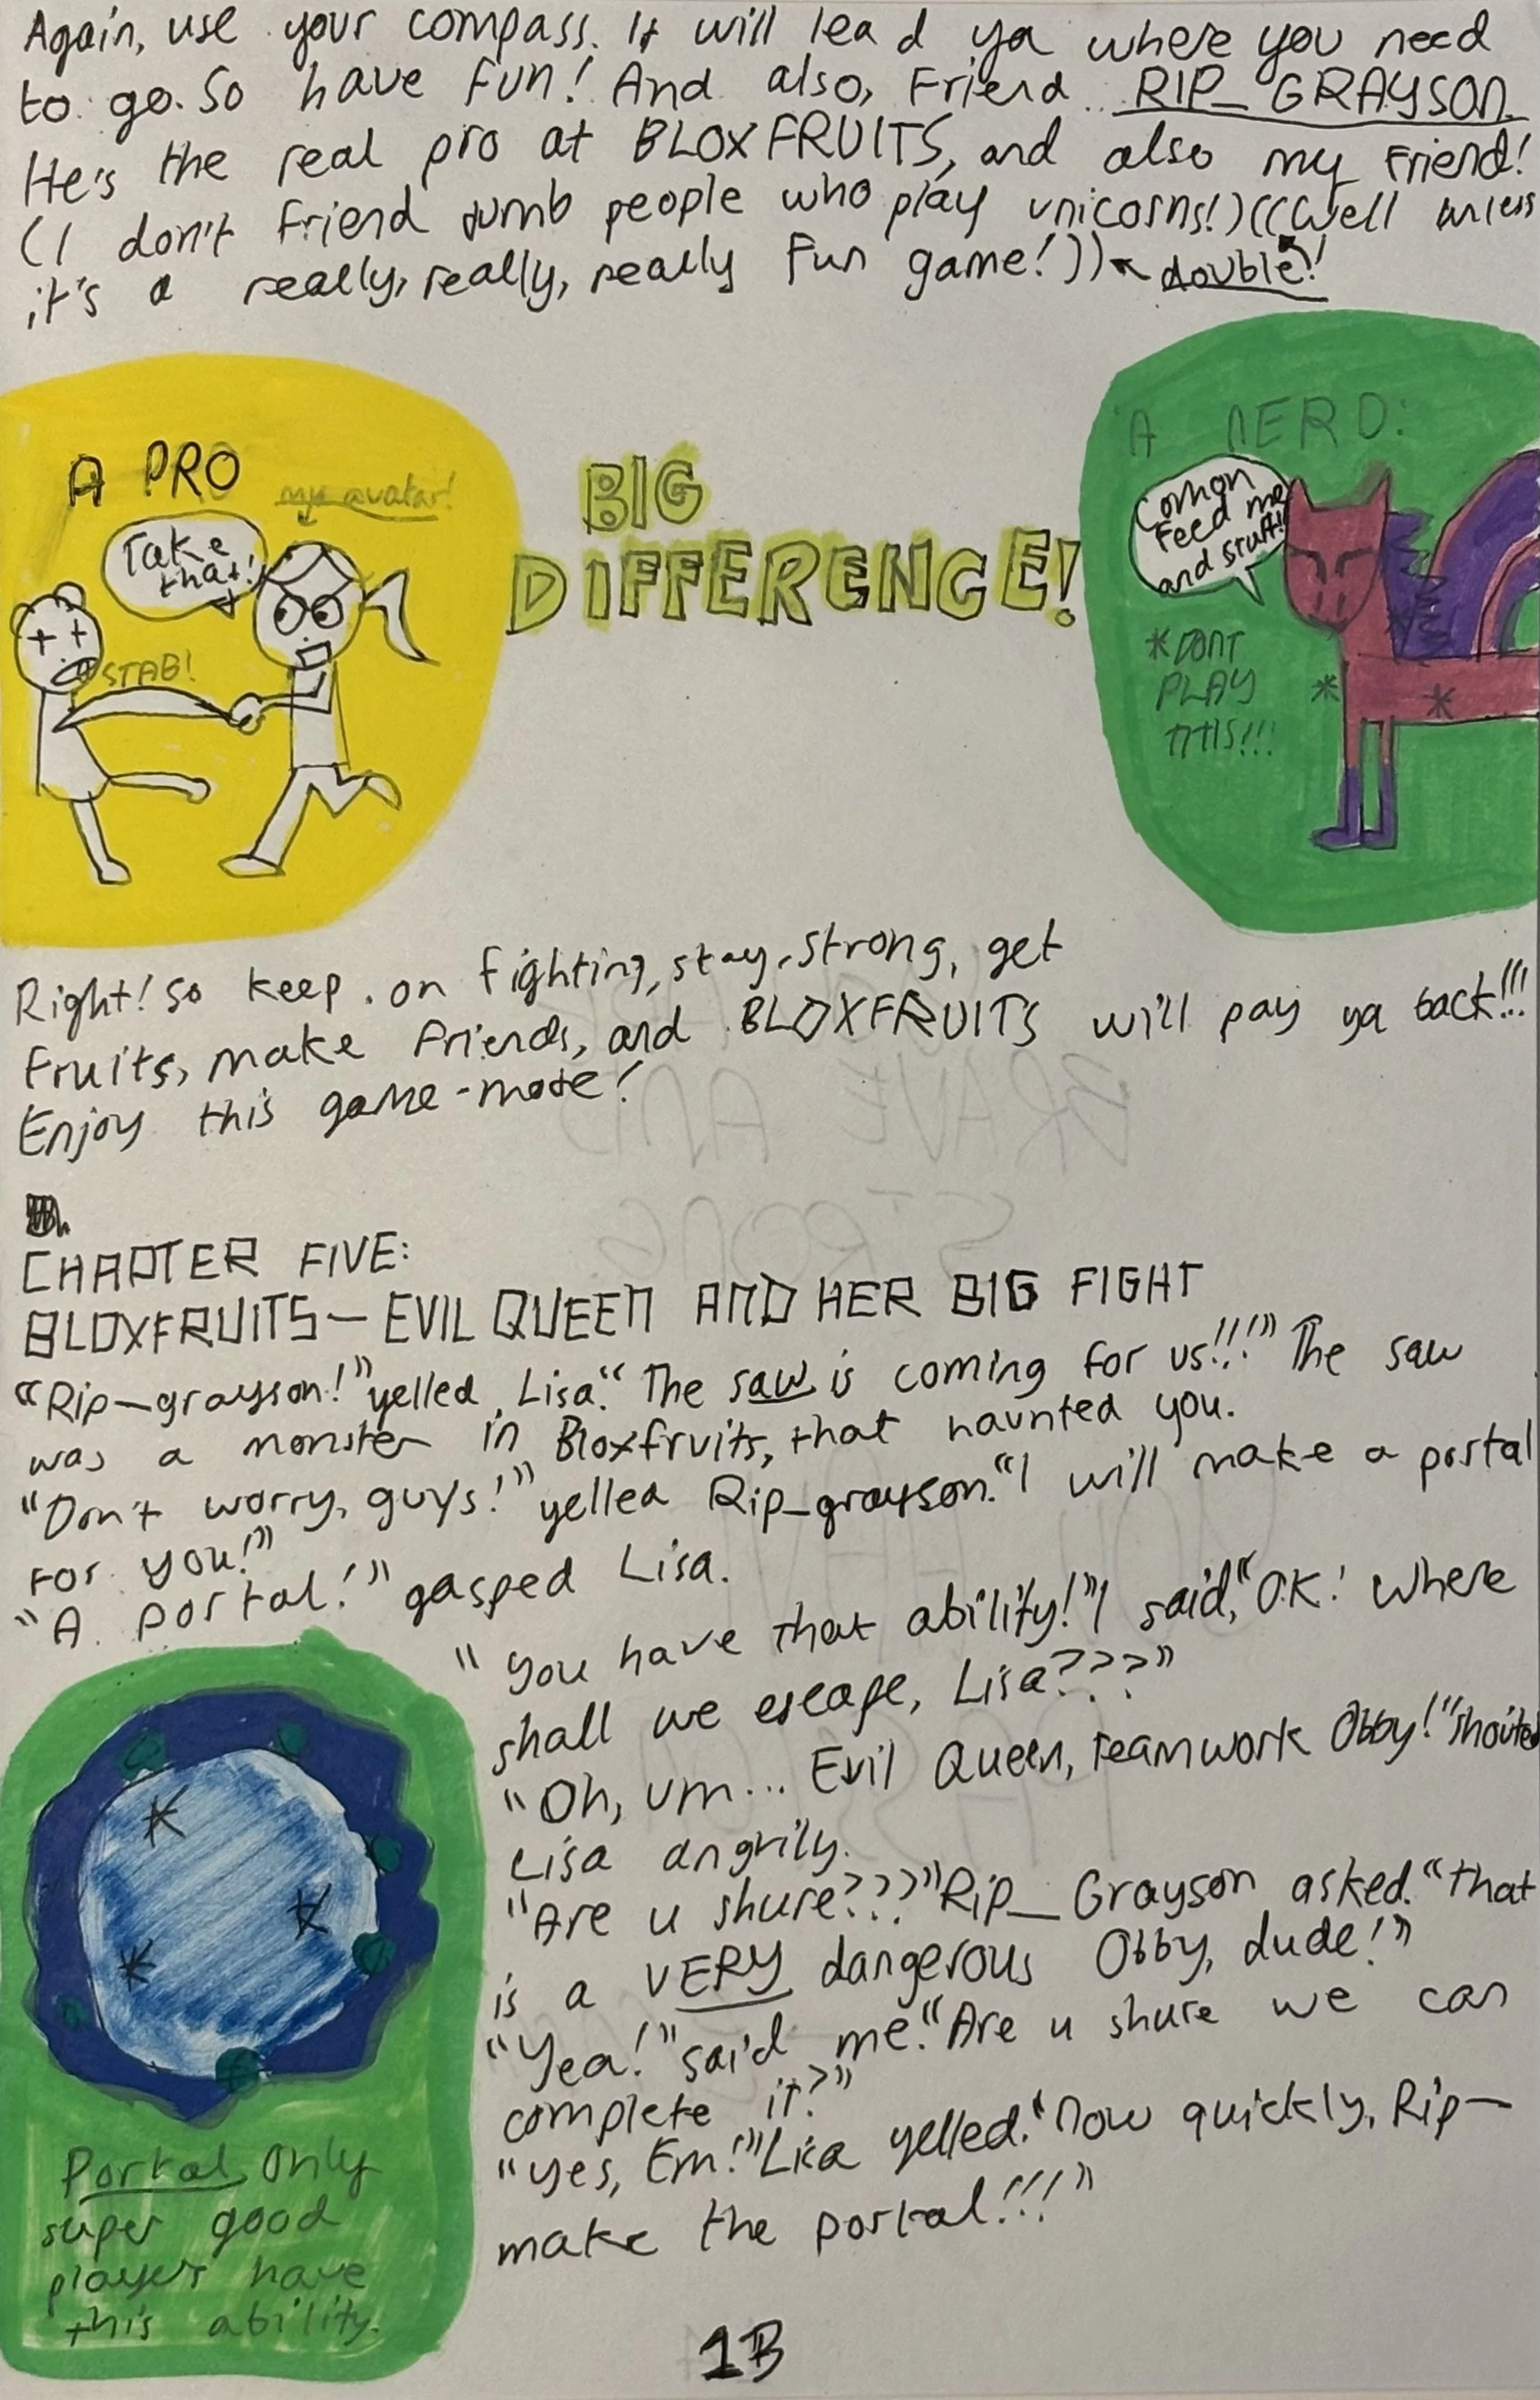 Again, use your compass. It will lead ya where you need
to go. So have fun! And also, Friend RIP_GRAYSON.
He's the real pro at BLOXFRUITS, and also my friend!
(I don't friend dumb people who play unicorns!)((Well unless
it's a really, really, really fun game!)) double!
A PRO
my avatar!
Take
that!
STAB!
BIG
DIFFERENCE!
A NERD:
Comon
Feed me
and stuff!
*DONT
PLAY
THIS!!!
Right! So keep on fighting, stay strong, get
fruits, make friends, and BLOXFRUITS will pay ya back!!!
Enjoy this game-mode!
CHAPTER FIVE:
BLOXFRUITS— EVIL QUEEN AND HER BIG FIGHT
"Rip_grayson!" yelled Lisa. "The saw is coming for us!!!" The saw
was a monster in Bloxfruits, that haunted you.
"Don't worry, guys!" yelled Rip_grayson. "I will make a portal
for you!"
"A portal!" gasped Lisa.
"You have that ability!" I said, "O.K! Where
shall we escape, Lisa???"
"Oh, um... Evil Queen, Teamwork Obby!" shouted
Lisa angrily.
"Are u shure???" Rip_Grayson asked. "That
is a VERY dangerous Obby, dude!"
"Yea!" said me. "Are u shure we can
complete it?"
"Yes, Em!" Lisa yelled. "Now quickly, Rip—
make the portal!!!"
Portal Only
super good
players have
this ability.
1B